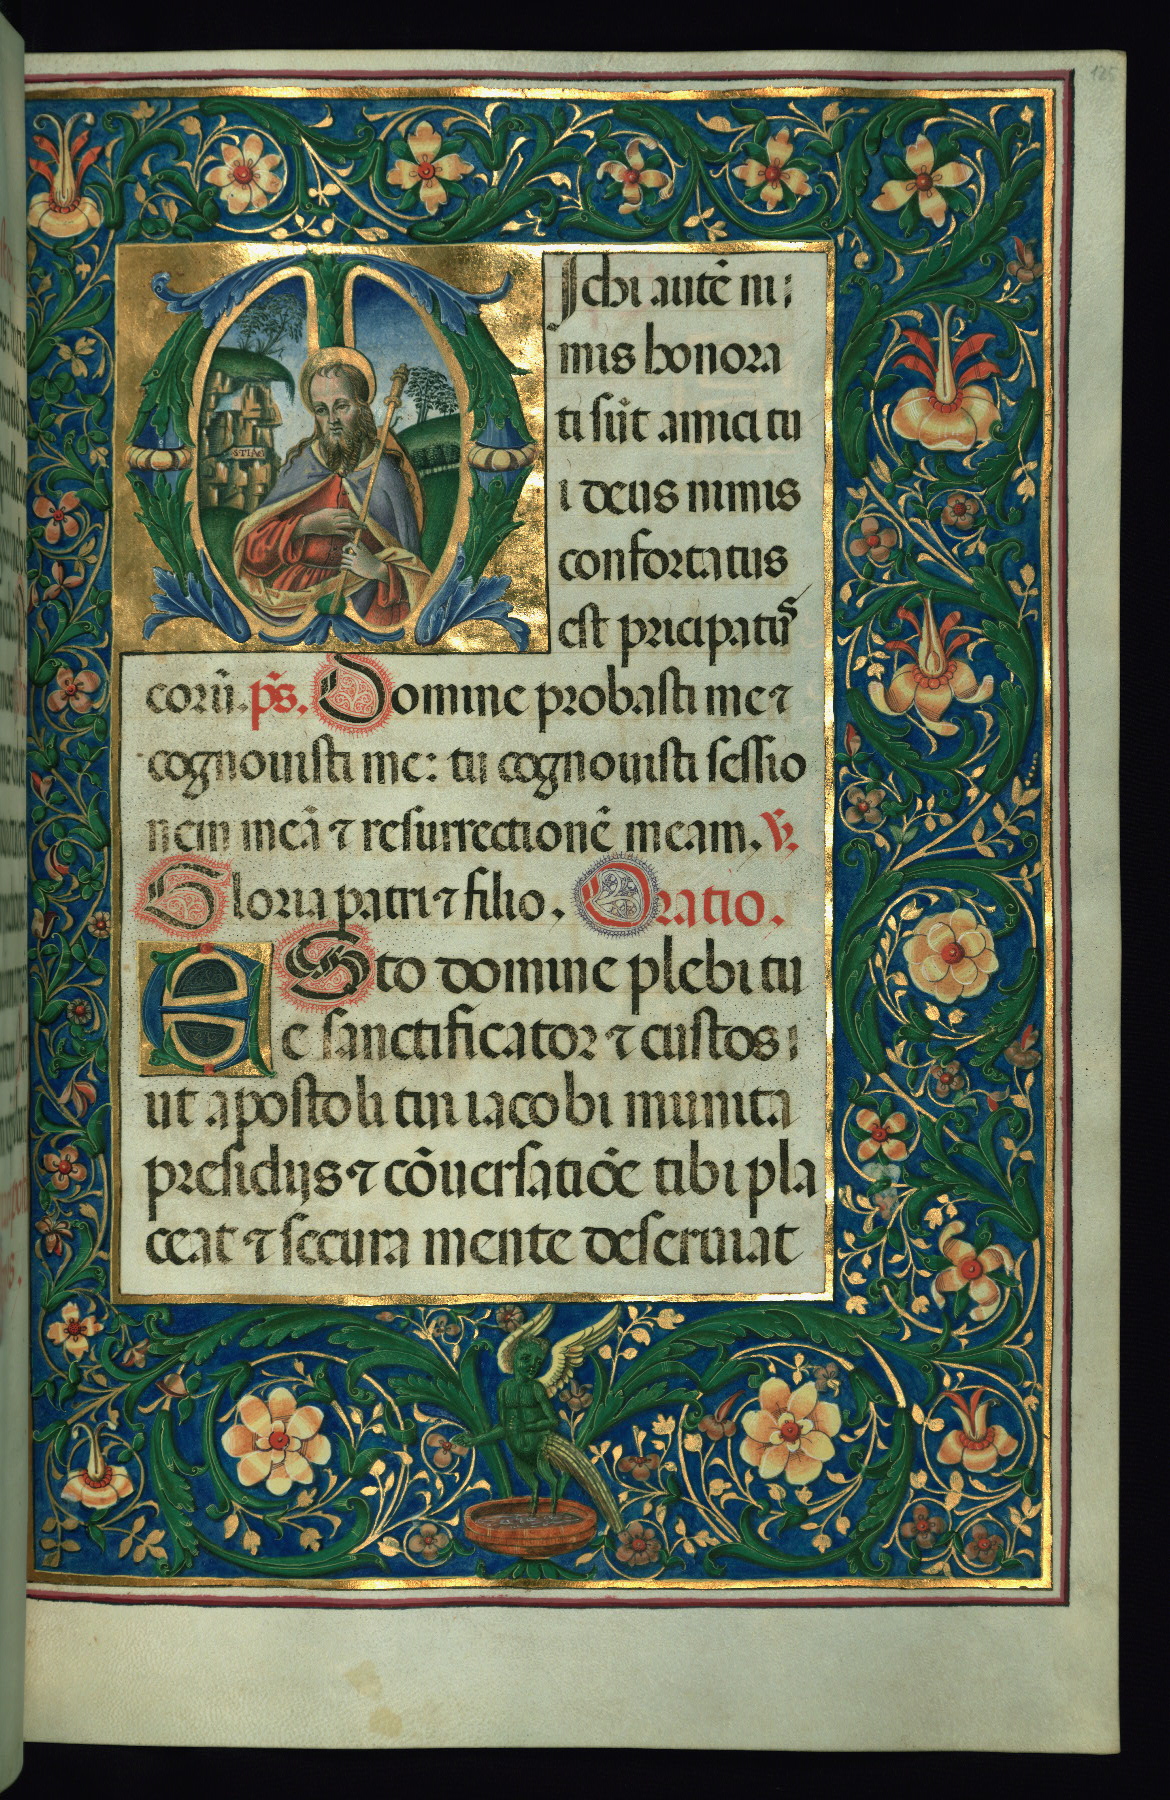 125
MIchi autē ni:
mis honora
ti sūt amici tu
i deus nimis
confortatus
est pricipatus
corū. ps. Domine probasti me ⁊
cognouisti me: tu cognouisti sessio
nem meā ⁊ resurrectionē meam. ℣.
Gloria patri ⁊ filio. Oratio.
ESto domine plebi tu
e sanctificator ⁊ custos:
ut apostoli tui iacobi munita
presidijs ⁊ cōuersatiōe tibi pla
ceat ⁊ secura mente deseruiat